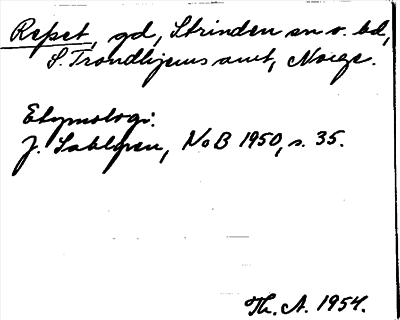 Repset, gd, Strinden sn o. hd,
S. Trondhjems amt, Norge.
Etymologi:
J. Sahlgren, NoB 1950, s. 35.
Th. A. 1954.